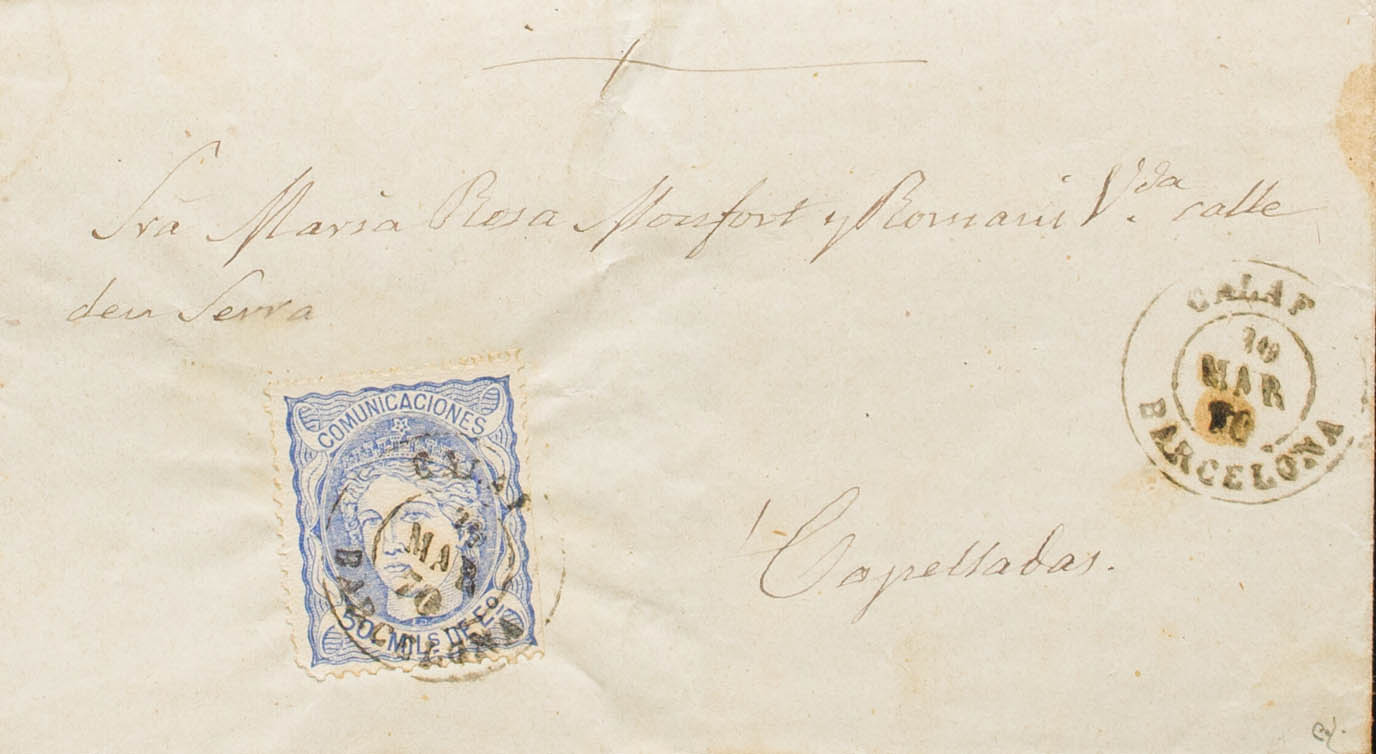 Sra María Rosa Monfort y Romani Vda. calle
deu Serra
COMUNICACIONES
50 MILS DE Eo
CALAF
MAR
70
BARCELONA
CALAF
19
MAR
70
BARCELONA
Capelladas.